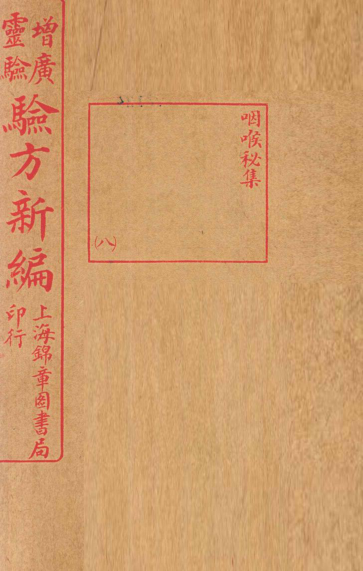 增廣
靈驗
驗方新編
上海錦章圖書局
印行
咽喉秘集
(八)